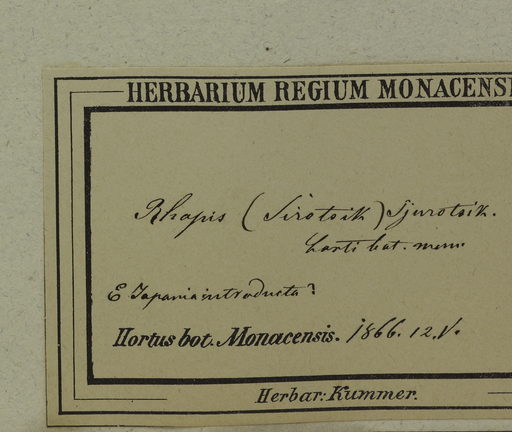 HERBARIUM REGIUM MONACENS
Rhapis (Sirotsik) Sjurotsik.
horti bot. mon.
E Japania introducta?
Hortus bot. Monacensis. 1866. 12.V.
Herbar: Kummer.